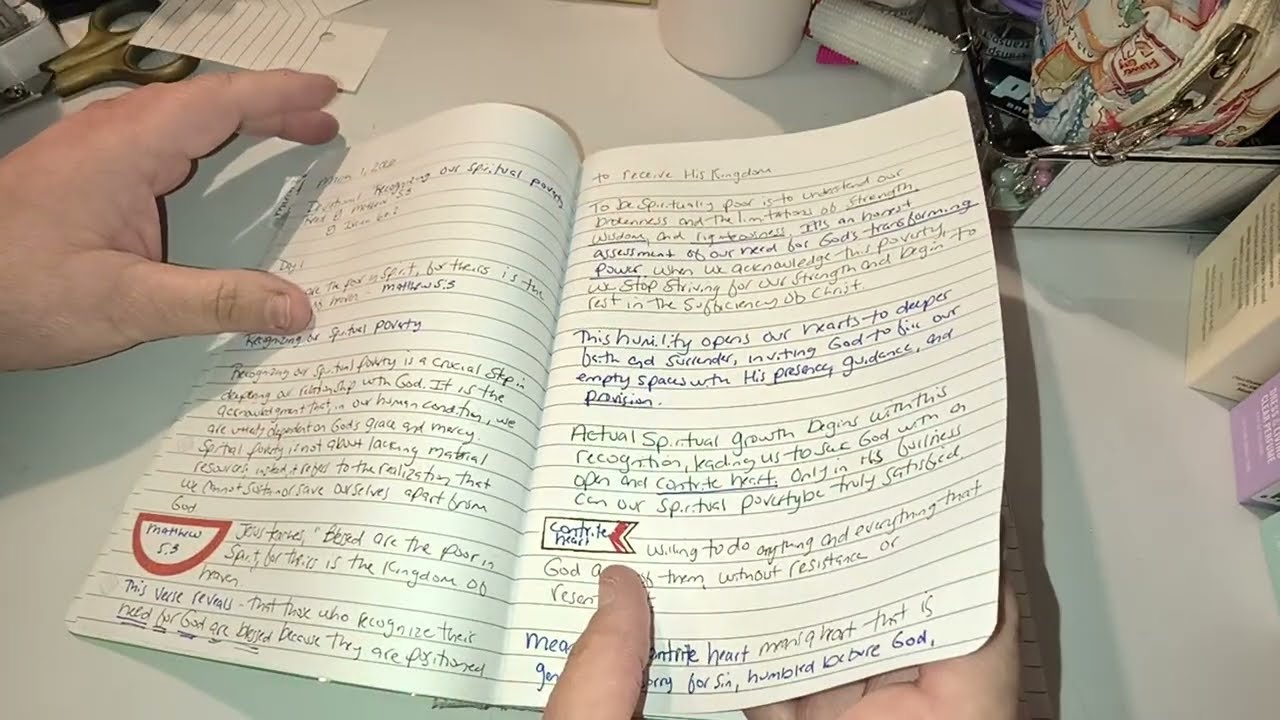 March 1,
Devotional: Recognizing our Spiritual poverty
Read Matthew 5:3
Day 1
the poor in Spirit, for theirs is the
heaven - matthew 5:3
Recognizing our Spiritual poverty
Recognizing our Spiritual Poverty is a crucial step in
deepening our relationship with God. It is the
acknowledgment that, in our human condition, we
are utterly dependent on God's grace and mercy.
Spiritual poverty is not about lacking material
resources; instead, it refers to the realization that
we cannot sustain or save ourselves apart from
God
matthew
5:3
Jesus teaches, "Blessed are the poor in
Spirit, for theirs is the Kingdom of
heaven
This verse reveals that those who recognize their
need for God are blessed because they are positioned
to receive His Kingdom
To be spiritually poor is to understand our
brokenness and the limitations of strength,
wisdom, and righteousness. It's an honest
assessment of our need for God's transforming
power. When we acknowledge this poverty,
we stop striving for our strength and begin to
rest in the sufficiency of Christ
This humility opens our hearts to deeper
faith and surrender, inviting God to fill our
empty spaces with His presence, guidance, and
provision.
Actual Spiritual growth begins with this
recognition, leading us to seek God with an
open and contrite heart. Only in his fullness
can our spiritual poverty be truly satisfied
contrite
heart
willing to do anything and everything that
God of them, without resistance or
contrite heart means a heart that is
sorry for sin, humbled before God,